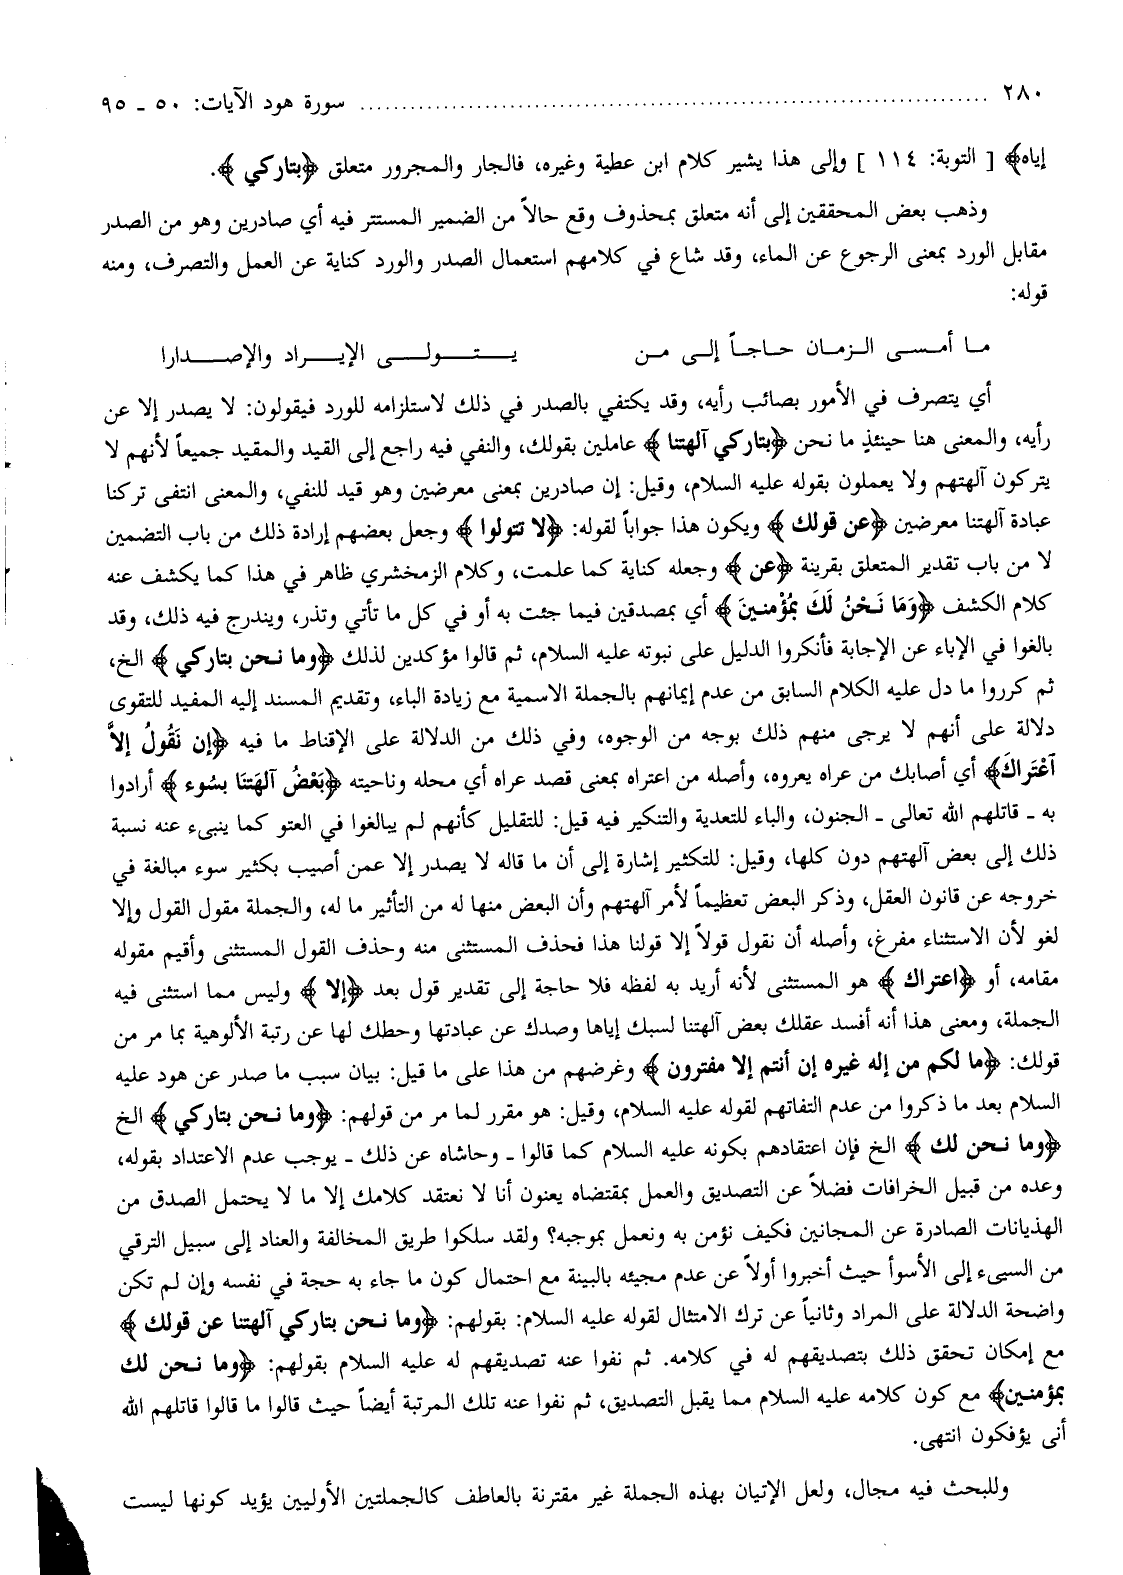 ٢٨٠ ........................................................................ سورة هود الآيات: ٥٠ ـ ٩٥
إياه﴾ [ التوبة: ١١٤ ] وإلى هذا يشير كلام ابن عطية وغيره، فالجار والمجرور متعلق ﴿بتاركي ﴾.
وذهب بعض المحققين إلى أنه متعلق بمحذوف وقع حالاً من الضمير المستتر فيه أي صادرين وهو من الصدر
مقابل الورد بمعنى الرجوع عن الماء، وقد شاع في كلامهم استعمال الصدر والورد كناية عن العمل والتصرف، ومنه
قوله:
ما أمسى الزمان حاجاً إلى من يتولى الإيراد والإصدارا
أي يتصرف في الأمور بصائب رأيه، وقد يكتفي بالصدر في ذلك لاستلزامه للورد فيقولون: لا يصدر إلا عن
رأيه، والمعنى هنا حينئذٍ ما نحن ﴿بتاركي آلهتنا ﴾ عاملين بقولك، والنفي فيه راجع إلى القيد والمقيد جميعاً لأنهم لا
يتركون آلهتهم ولا يعملون بقوله عليه السلام، وقيل: إن صادرين بمعنى معرضين وهو قيد للنفي، والمعنى انتفى تركنا
عبادة آلهتنا معرضين ﴿عن قولك ﴾ ويكون هذا جواباً لقوله: ﴿لا تتولوا ﴾ وجعل بعضهم إرادة ذلك من باب التضمين
لا من باب تقدير المتعلق بقرينة ﴿عن ﴾ وجعله كناية كما علمت، وكلام الزمخشري ظاهر في هذا كما يكشف عنه
كلام الكشف ﴿وَمَا نَحْنُ لَكَ بِمُؤْمنينَ ﴾ أي بمصدقين فيما جئت به أو في كل ما تأتي وتذر، ويندرج فيه ذلك، وقد
بالغوا في الإباء عن الإجابة فأنكروا الدليل على نبوته عليه السلام، ثم قالوا مؤكدين لذلك ﴿وما نحن بتاركي ﴾ الخ،
ثم كرروا ما دل عليه الكلام السابق من عدم إيمانهم بالجملة الاسمية مع زيادة الباء، وتقديم المسند إليه المفيد للتقوى
دلالة على أنهم لا يرجى منهم ذلك بوجه من الوجوه، وفي ذلك من الدلالة على الإقناط ما فيه ﴿إن نَقُولُ إلاَّ
آعْتَراكَ﴾ أي أصابك من عراه يعروه، وأصله من اعتراه بمعنى قصد عراه أي محله وناحيته ﴿بَعْضُ آلهَتنَا بسُوء ﴾ أرادوا
به ـ قاتلهم الله تعالى ـ الجنون، والباء للتعدية والتنكير فيه قيل: للتقليل كأنهم لم يبالغوا في العتو كما ينبىء عنه نسبة
ذلك إلى بعض آلهتهم دون كلها، وقيل: للتكثير إشارة إلى أن ما قاله لا يصدر إلا عمن أصيب بكثير سوء مبالغة في
خروجه عن قانون العقل، وذكر البعض تعظيماً لأمر آلهتهم وأن البعض منها له من التأثير ما له، والجملة مقول القول وإلا
لغو لأن الاستثناء مفرغ، وأصله أن نقول قولاً إلا قولنا هذا فحذف المستثنى منه وحذف القول المستثنى وأقيم مقوله
مقامه، أو ﴿اعتراك ﴾ هو المستثنى لأنه أريد به لفظه فلا حاجة إلى تقدير قول بعد ﴿إلا ﴾ وليس مما استثنى فيه
الجملة، ومعنى هذا أنه أفسد عقلك بعض آلهتنا لسبك إياها وصدك عن عبادتها وحطك لها عن رتبة الألوهية بما مر من
قولك: ﴿ما لكم من إله غيره إن أنتم إلا مفترون ﴾ وغرضهم من هذا على ما قيل: بيان سبب ما صدر عن هود عليه
السلام بعد ما ذكروا من عدم التفاتهم لقوله عليه السلام، وقيل: هو مقرر لما مر من قولهم: ﴿وما نحن بتاركي ﴾ الخ
﴿وما نحن لك ﴾ الخ فإن اعتقادهم بكونه عليه السلام كما قالوا ـ وحاشاه عن ذلك ـ يوجب عدم الاعتداد بقوله،
وعده من قبيل الخرافات فضلاً عن التصديق والعمل بمقتضاه يعنون أنا لا نعتقد كلامك إلا ما لا يحتمل الصدق من
الهذيانات الصادرة عن المجانين فكيف نؤمن به ونعمل بموجبه؟ ولقد سلكوا طريق المخالفة والعناد إلى سبيل الترقي
من السيىء إلى الأسوأ حيث أخبروا أولاً عن عدم مجيئه بالبينة مع احتمال كون ما جاء به حجة في نفسه وإن لم تكن
واضحة الدلالة على المراد وثانياً عن ترك الامتثال لقوله عليه السلام: بقولهم: ﴿وما نحن بتاركي آلهتنا عن قولك ﴾
مع إمكان تحقق ذلك بتصديقهم له في كلامه. ثم نفوا عنه تصديقهم له عليه السلام بقولهم: ﴿وما نحن لك
بمؤمنين﴾ مع كون كلامه عليه السلام مما يقبل التصديق، ثم نفوا عنه تلك المرتبة أيضاً حيث قالوا ما قالوا قاتلهم الله
أنى يؤفكون انتهى.
وللبحث فيه مجال، ولعل الإتيان بهذه الجملة غير مقترنة بالعاطف كالجملتين الأوليين يؤيد كونها ليست